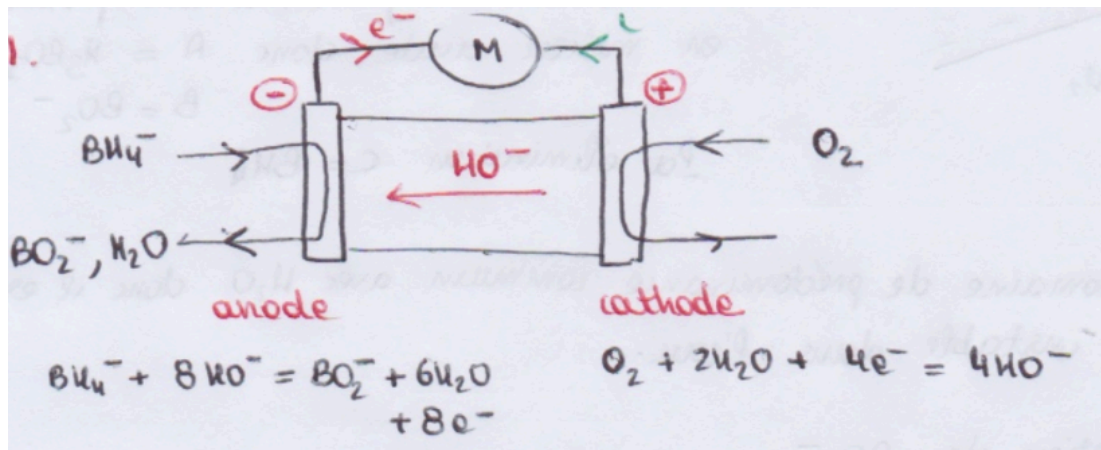 1.
e⁻
M
i
⊖
⊕
BH₄⁻
HO⁻
O₂
BO₂⁻, H₂O
anode
cathode
BH₄⁻ + 8 HO⁻ = BO₂⁻ + 6H₂O
+ 8e⁻
O₂ + 2H₂O + 4e⁻ = 4HO⁻